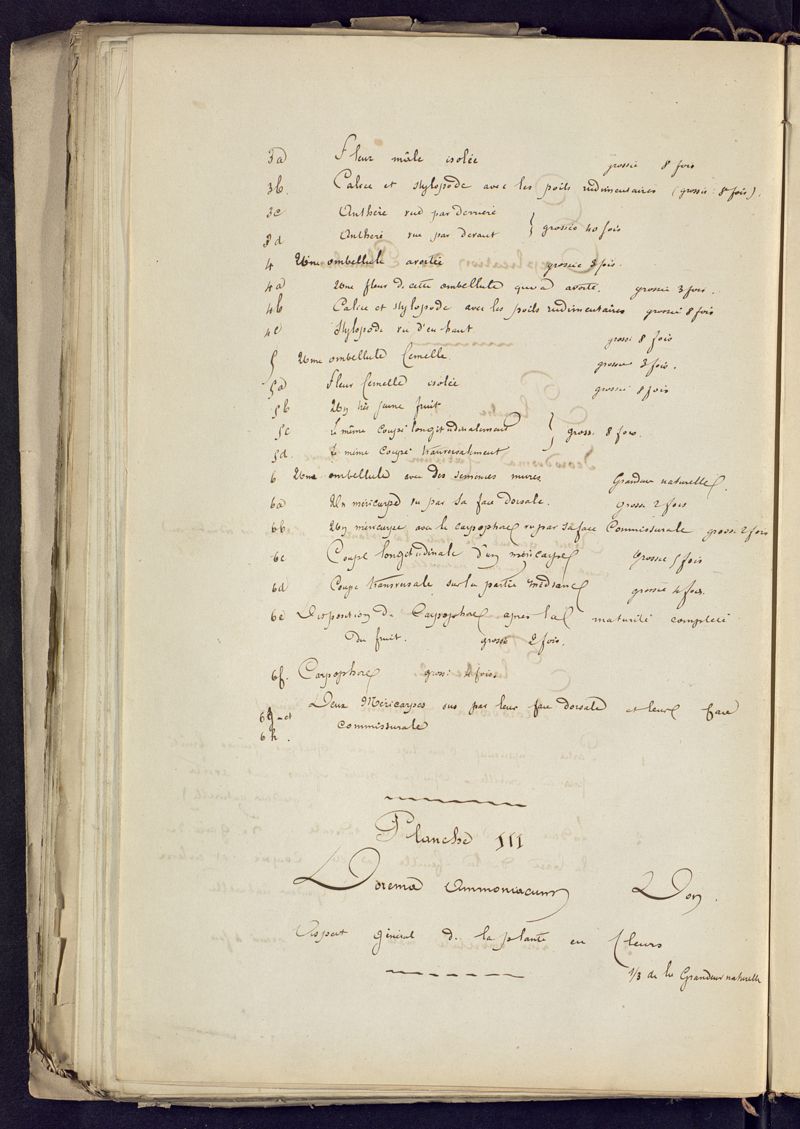 3a Fleur mâle isolée grossie 8 fois
3b. Calice et stylopode avec les poils rudimentaires (grossie 8 fois).
3c Anthère vue par derrière
3d Anthère vue par devant } grossée 40 fois
4 Une ombellule avortée grossie 3 fois.
4a Une fleur de cette ombellule avorté. grossie 3 fois.
4b Calice et stylopode avec les poils rudimentaires grossie 8 fois
4c Stylopode vu d'en haut grossi 8 fois
5 Une ombellule femelle. grossie 3 fois.
5a Fleur femelle isolée grossie 8 fois
5b Un très jeune fruit
5c Le même coupé longitudinalement } gross. 8 fois.
5d Le même coupé transversalement
6 Une ombellule avec des semences mures. Grandeur naturelle.
6a Un méricarpe vu par sa face dorsale. grossi 2 fois
6b Un méricarpe avec le carpophore vu par sa face Commissurale grossi 2 fois
6c Coupe longitudinale d'un méricarpe Grossie 5 fois
6d Coupe transversale sur la partie médiane grossie 4 fois.
6e Disposition du Carpophore après la maturité complète
du fruit. grossi 2 fois.
6f. Carpophore grossi 4 fois.
6g et Deux Méricarpes vus par leur face dorsale et leur face
6h. commissurale
Planche III
Dorema Ammoniacum Don.
Aspect général de la plante en fleurs
1/3 de la Grandeur naturelle